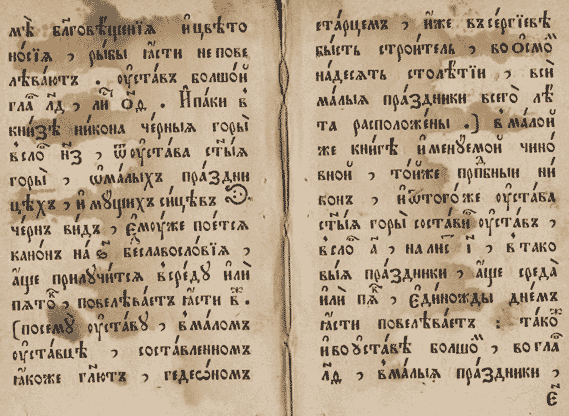 мѣ̀ бл҃говѣ́щенїѧ и҆цвѣто
но́сїѧ , ры́бы ꙗ҆́сти не пове
лѣва́ютъ . оу҆ста́въ болшо́й
гла̀ л҃д , ли о҃д . И҆па́ки в̾
кни́зѣ ни́кона че́рныѧ горы̀
в̾сло н҃з , ѿ оу҆ста́ва ст҃ы́ѧ
горы̀ , ѡ҆ма́лыхъ пра́здни
цѣхъ , и҆му́щихъ си́цевъ
че́рнъ ви́дъ , є҆му́же пое́тсѧ
кано́нъ на ѕ҃ бе́славосло́вїѧ ,
а҆́ще прилучи́тсѧ в̾среду и҆лѝ
пѧто , повелѣва́етъ ꙗ҆́сти в҃ж .
(посему̀ оу҆ста́ву , в̾ма́ломъ
оу҆ста́вцѣ , соста́вленномъ
ꙗ҆́коже гл҃ютъ , гедеѡ́номъ
ета́рцемъ , и҆́же въ се́ргїевѣ
бы́сть строи́тель , во ѻ҆смо
на́десѧть столѣ́тїи , всѝ
ма́лыѧ пра́здники всегѡ̀ лѣ́
та расположе́ны .) в̾ма́лой
же кни́гѣ и҆менуемой чино́
вной , то́йже прпⷣбный ни́
конъ , и҆ ѿтогѡ́же оу҆ста́ва
ст҃ы́ѧ горы̀ соста́ви оу҆ста́въ ,
в̾сло а҃ , на лис і҃ , в̾ тако
вы́ѧ пра́здники , а҆́ще среда̀
и҆лѝ пѧ , є҆ди́ножды дне́мъ
ꙗ҆́сти повелѣва́етъ : тако́ж
и҆ во оу҆ста́вѣ болшо , во гла
л҃д , в̾ма́лыѧ пра́здники ,
є҆